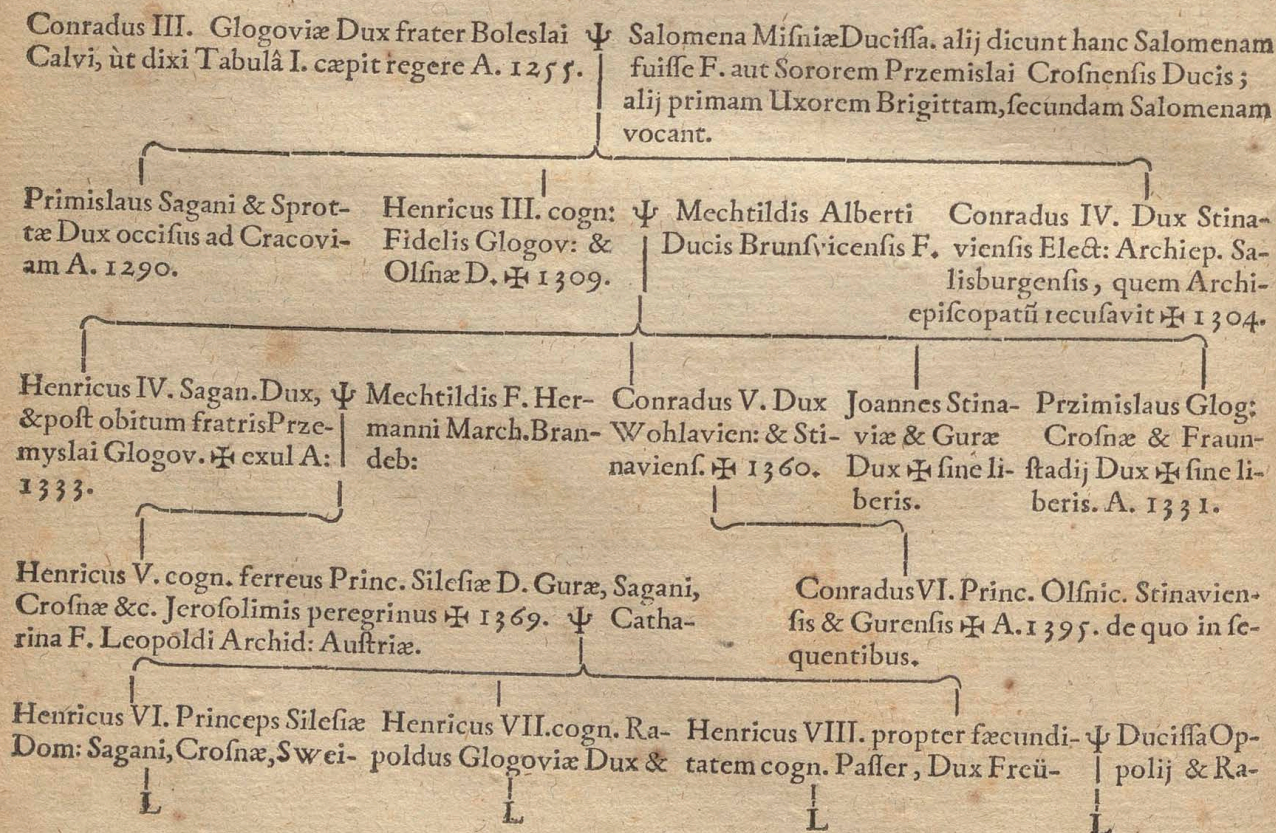 Conradus III. Glogoviæ Dux frater Boleslai Ψ
Calvi, ùt dixi Tabulâ I. cæpit regere A. 1255.
Salomena MiſniæDuciſſa. alij dicunt hanc Salomenam
fuiſſe F. aut Sororem Przemislai Croſnenſis Ducis;
alij primam Uxorem Brigittam, ſecundam Salomenam
vocant.
Primislaus Sagani & Sprot-
tæ Dux occiſus ad Cracovi-
am A. 1290.
Henricus III. cogn: Ψ
Fidelis Glogov: &
Olſnæ D. ✠ 1309.
Mechtildis Alberti
Ducis Brunſvicenſis F.
Conradus IV. Dux Stina-
vienſis Elect: Archiep. Sa-
lisburgenſis, quem Archi-
epiſcopatũ recuſavit ✠ 1304.
Henricus IV. Sagan. Dux, Ψ
& poſt obitum fratris Prze-
myslai Glogov. ✠ exul A:
1333.
Mechtildis F. Her-
manni March. Bran-
deb:
Conradus V. Dux
Wohlavien: & Sti-
navienſ. ✠ 1360.
Joannes Stina-
viæ & Guræ
Dux ✠ ſine li-
beris.
Przimislaus Glog:
Croſnæ & Fraun-
ſtadij Dux ✠ ſine li-
beris. A. 1331.
Henricus V. cogn. ferreus Princ. Sileſiæ D. Guræ, Sagani,
Croſnæ &c. Jeroſolimis peregrinus ✠ 1369. Ψ Catha-
rina F. Leopoldi Archid: Auſtriæ.
Conradus VI. Princ. Olſnic. Stinavien-
ſis & Gurenſis ✠ A. 1395. de quo in ſe-
quentibus.
Henricus VI. Princeps Sileſiæ
Dom: Sagani, Croſnæ, Swei-
L
Henricus VII. cogn. Ra-
poldus Glogoviæ Dux &
L
Henricus VIII. propter fæcundi- Ψ
tatem cogn. Paſſer, Dux Freü-
L
Duciſſa Op-
polij & Ra-
L